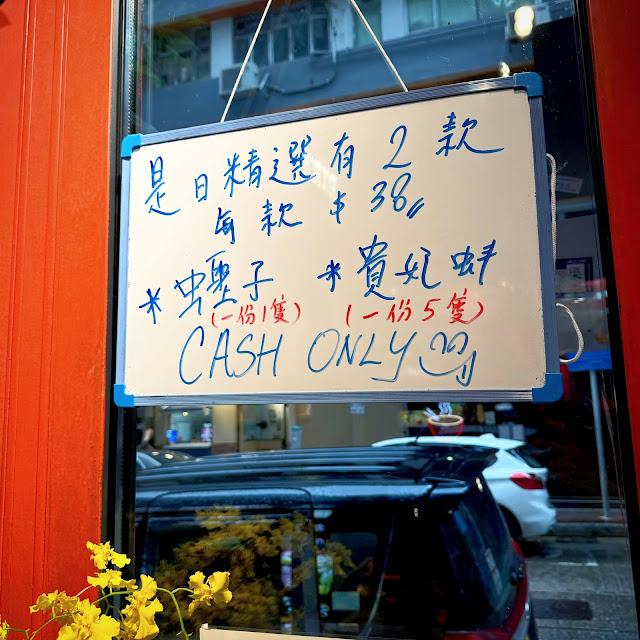 是日精選有2款
每款$38
*蟶子 *貴妃蚌
(一份1隻) (一份5隻)
CASH ONLY